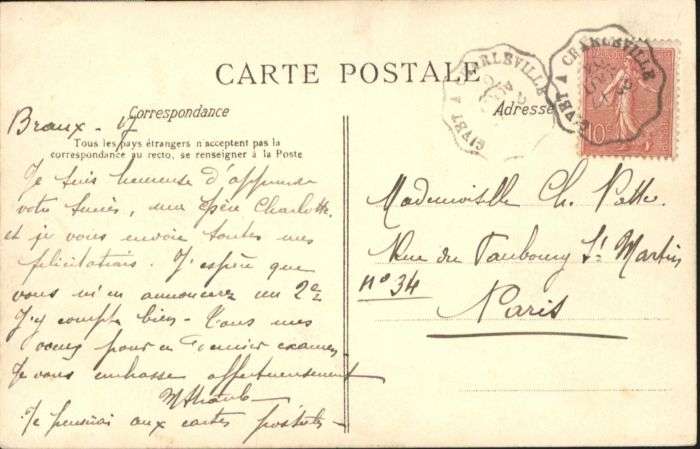 CARTE POSTALE
Correspondance
Adresse
Tous les pays étrangers n'acceptent pas la
correspondance au recto, se renseigner à la Poste
GIVET A CHARLEVILLE
GIVET A CHARLEVILLE
10c
Braux
Je suis heureuse d'apprendre
votre succès, ma chère Charlotte,
et je vous envoie toutes mes
félicitations. J'espère que
vous m'en annoncerez un 2e
J'y compte bien - Tous mes
voeux pour ce dernier examen
Je vous embrasse affectueusement
Je penserai aux cartes postales -
Mademoiselle Ch.
Rue du Faubourg St Martin
no 34
Paris